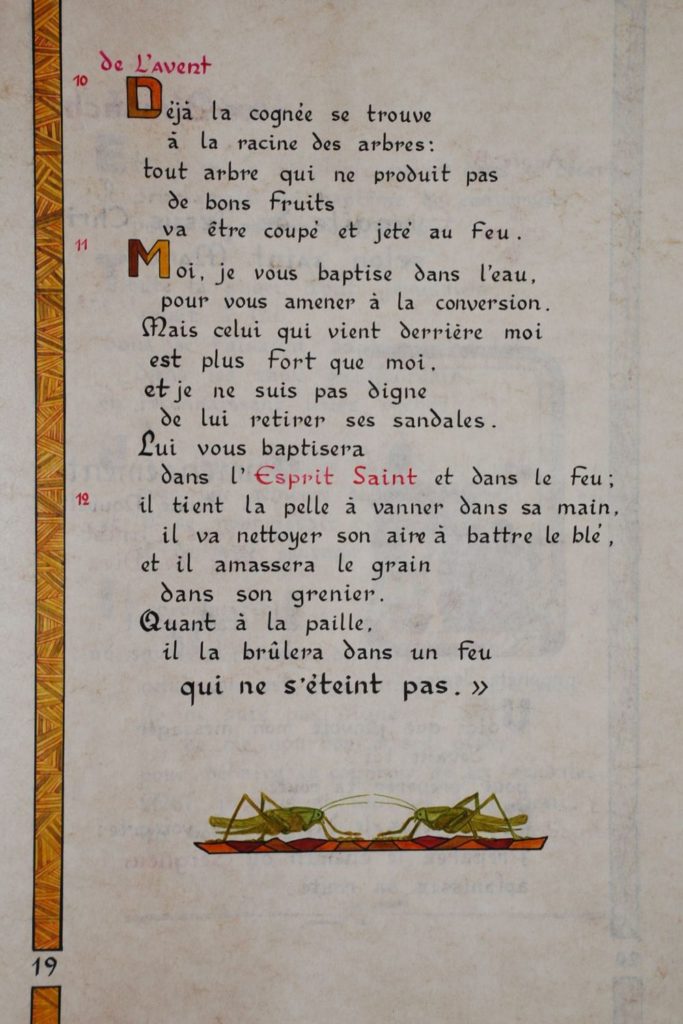 de L'avent
10
Déjà la cognée se trouve
à la racine des arbres:
tout arbre qui ne produit pas
de bons fruits
va être coupé et jeté au feu.
11
Moi, je vous baptise dans l'eau,
pour vous amener à la conversion.
Mais celui qui vient derrière moi
est plus fort que moi,
et je ne suis pas digne
de lui retirer ses sandales.
Lui vous baptisera
dans l'Esprit Saint et dans le feu;
12
il tient la pelle à vanner dans sa main,
il va nettoyer son aire à battre le blé,
et il amassera le grain
dans son grenier.
Quant à la paille,
il la brûlera dans un feu
qui ne s'éteint pas. »
19